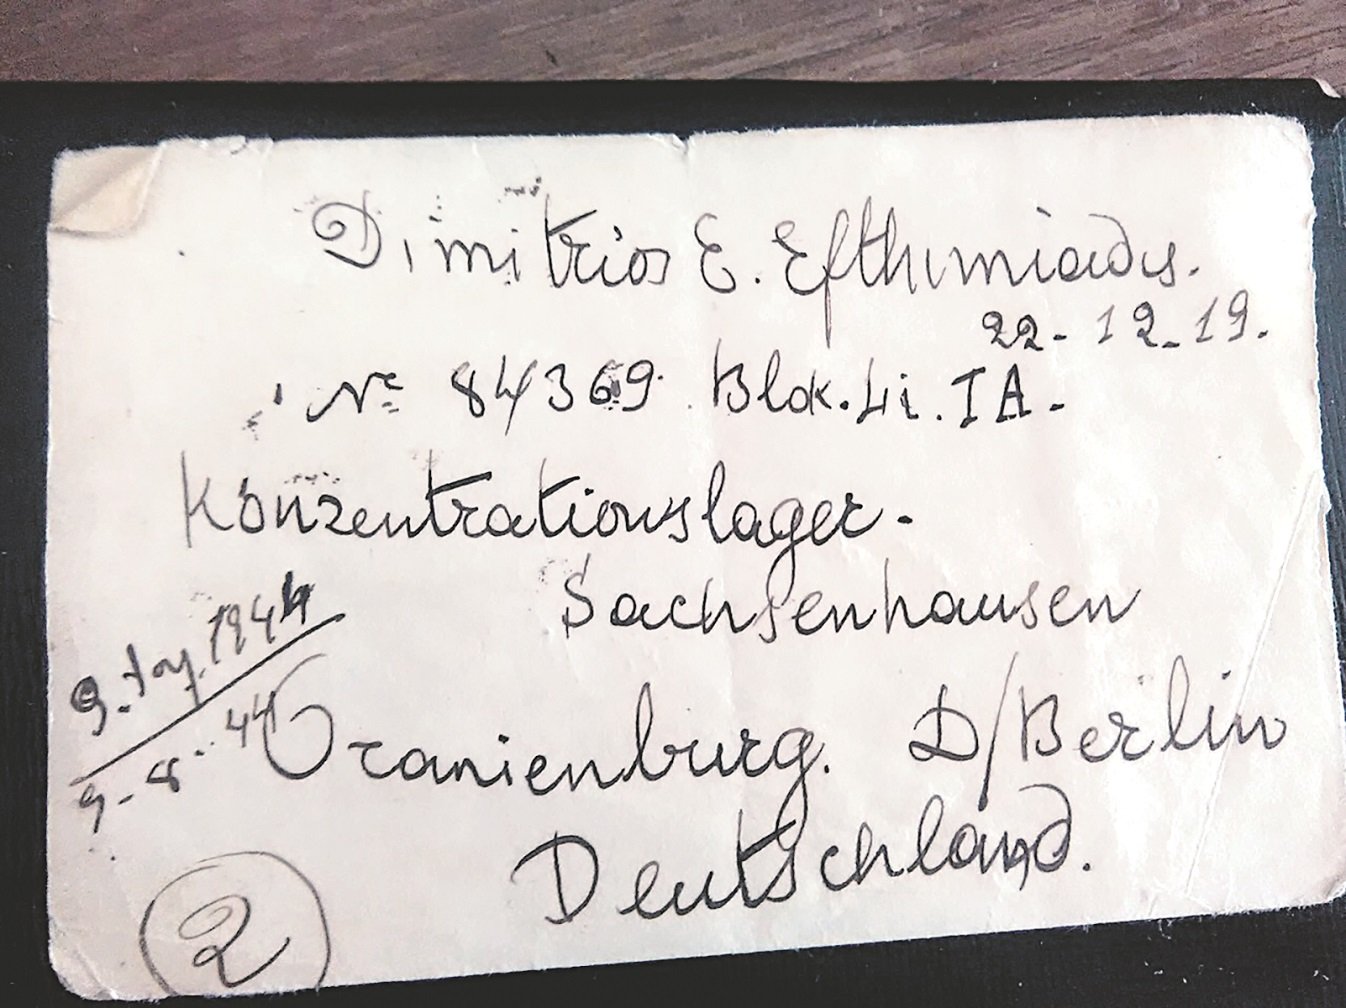 Dimitrios E. Efthimiadis.
22-12-19.
No 84369. Blok. 4i. IA.
Konzentrationslager.
Sachsenhausen
Oranienburg. D/Berlin
Deutschland.
1944
9-8-44
2